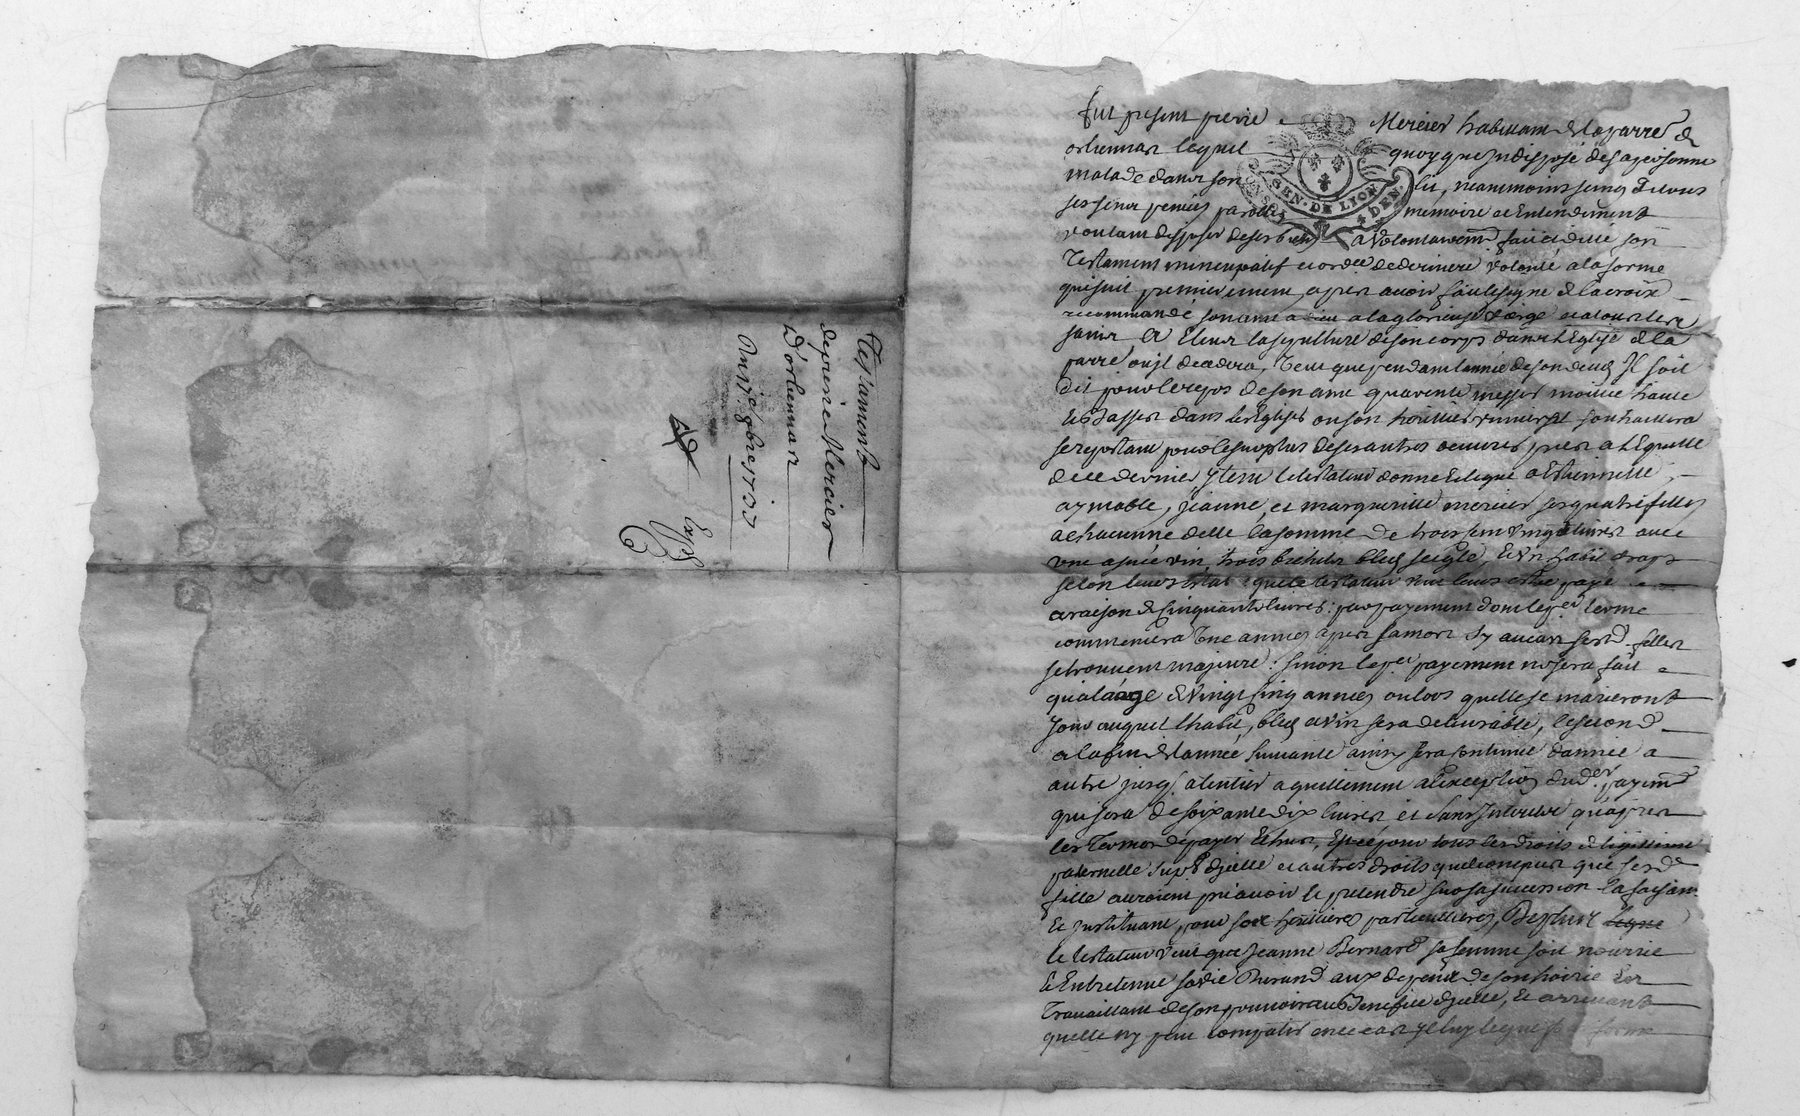 Testamment
de pierre Mercier
D'orliennas
Du 17e 9bre 1737
Exp.
fut present pierre Mercier habitant de la parre de
orliennas lequel quoy que indisposé de sa personne
malade dans son lit, neammoins sing de tous
ses sens memoire et Entendement
voulant disposer de ses biens a volontairemt. fait et dicté son
Testament nuncupatif et ordce de derniere volonté a la forme
que suit premierement apres avoir fait le signe de la croix
recommandé son ame a dieu a la glorieuse vierge et a tous les
saints Et Eleu la sepulture de son corps dans l'Eglise de la
parre ou jl decedera, veut que pendant l'année de son deces Jl soit
dit pour le repos de son ame quarente messes moitié haute
Et Basses dans les Eglises ou son heritier universel souhaittera
se reportant pour le surplus de ses autres oeuvres pies a l'Equitté
de ce dernier Jtem le testateur donne Et legue a Estiennette,
aymable, jeanne, et margueritte mercier ses quatre filles
a chacunne d'elle la somme de trois sent vingt livres avec
une asnée vin, trois bichets bled seigle, Et un habit drap
selon leurs Estat que le testateur veut leurs estre payé
a raison de sinquante livres par payement dont le per terme
commencera une année apres sa mort sy aucun sesd. filles
se trouvent majeure: sinon le per payement ne sera fait
qu'a l'aage de vingt sing années ou lors quelle se marieront
Jour auquel l'habit, bled et vin sera delivrable, le second
a la fin de l'année suivante ainsy sera continué d'année a
autre jusq. a l'entier aquittement a l'exception du der payemt
qui sera de soixante dix livres et sans Jnterest qu'apres
les Termes de payer Echus, Et ce pour tous les droits de legitime
paternelle sup.t d'jcelle et autres droits quelconques que sesd.
fille auroient pu avoir et pretendre sur sa succession la faisant
Et jnstituant, pour ses heritieres particullieres, De plus legue
le testateur veut que Jeanne Bernard sa femme soit nourrie
Et Entretenue sa vie Durand aux depends de son hoirie En
Travaillant de son pouvoir au Benefice d'jcelle, Et arrivant
quelle ny peut compatir en ce cas jl luy legue